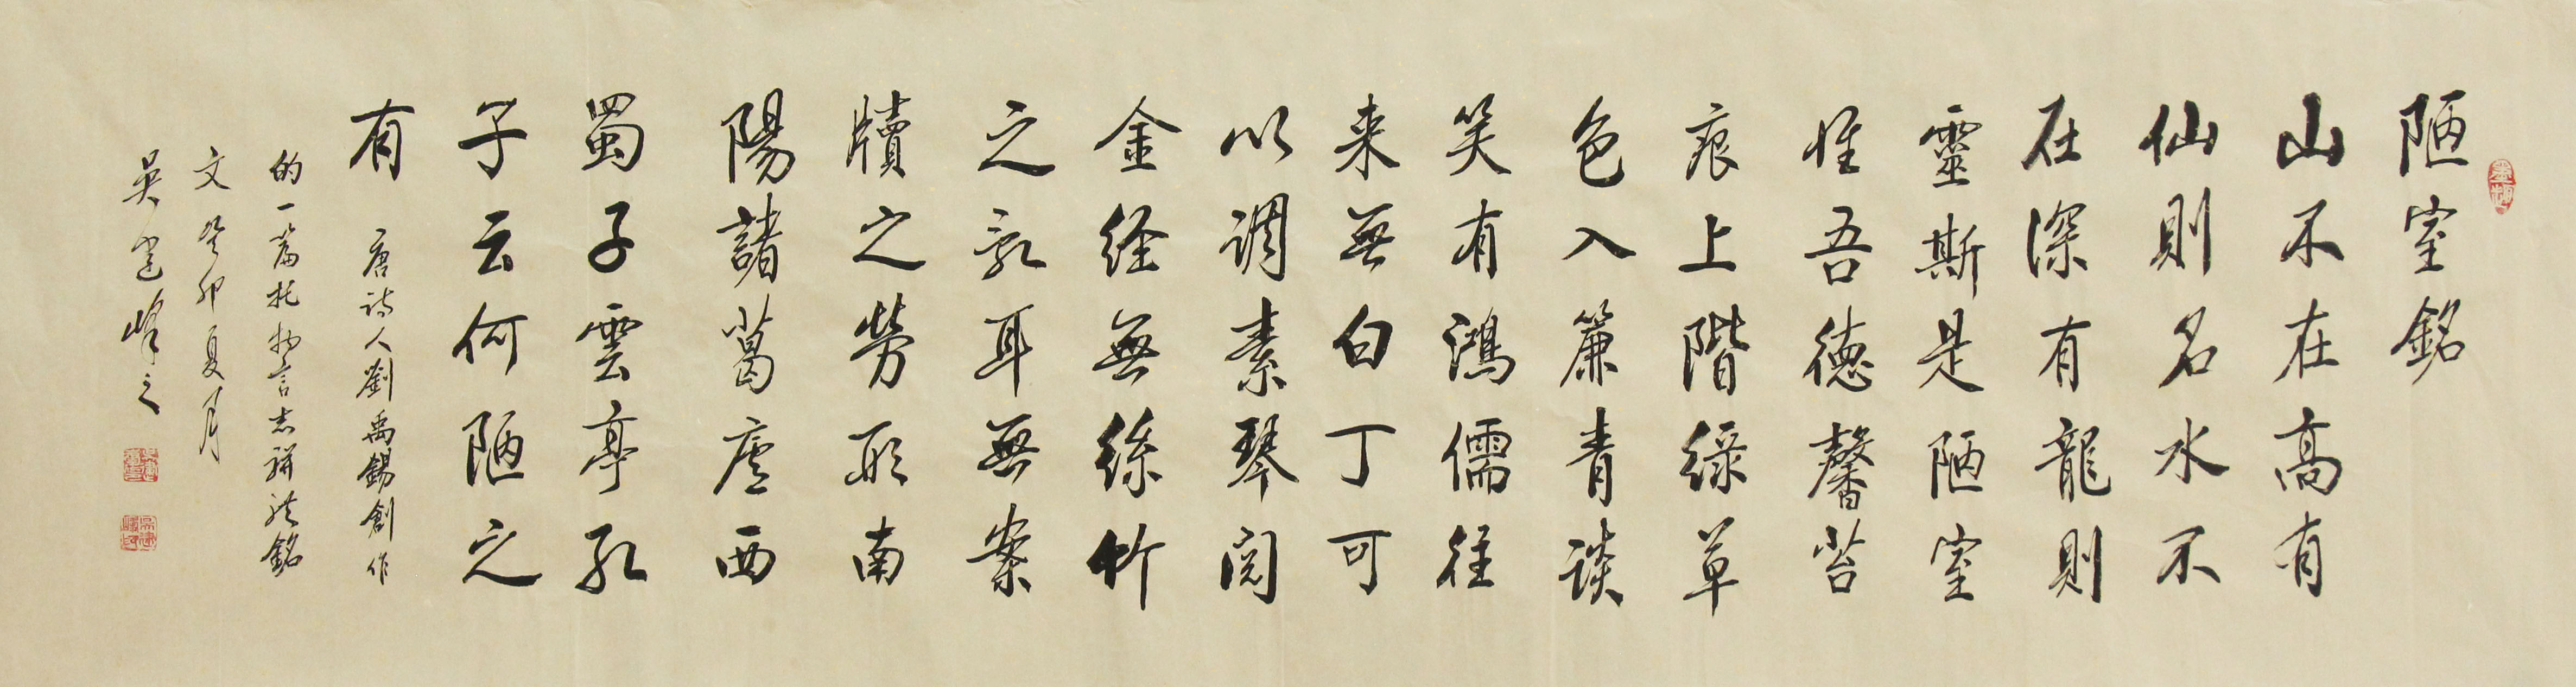 陋室銘
山不在高有
仙則名水不
在深有龍則
靈斯是陋室
惟吾德馨苔
痕上階綠草
色入簾青談
笑有鴻儒往
来無白丁可
以調素琴閱
金経無絲竹
之亂耳無案
牘之勞形南
陽諸葛廬西
蜀子雲亭孔
子云何陋之
有 唐詩人劉禹錫創作
的一篇托物言志駢體銘
文 癸卯夏月
吴建峰之